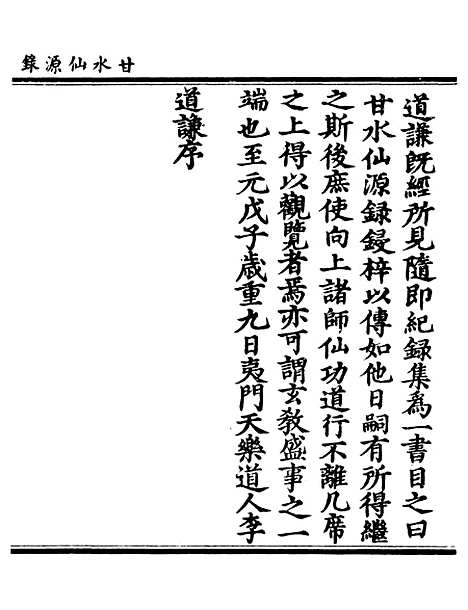 甘水仙源錄
道謙既經所見隨即紀録集爲一書目之曰
甘水仙源録鋟梓以傳如他日嗣有所得繼
之斯後庶使向上諸師仙功道行不離几席
之上得以觀覽者焉亦可謂玄教盛事之一
端也至元戊子歲重九日夷門天樂道人李
道謙序